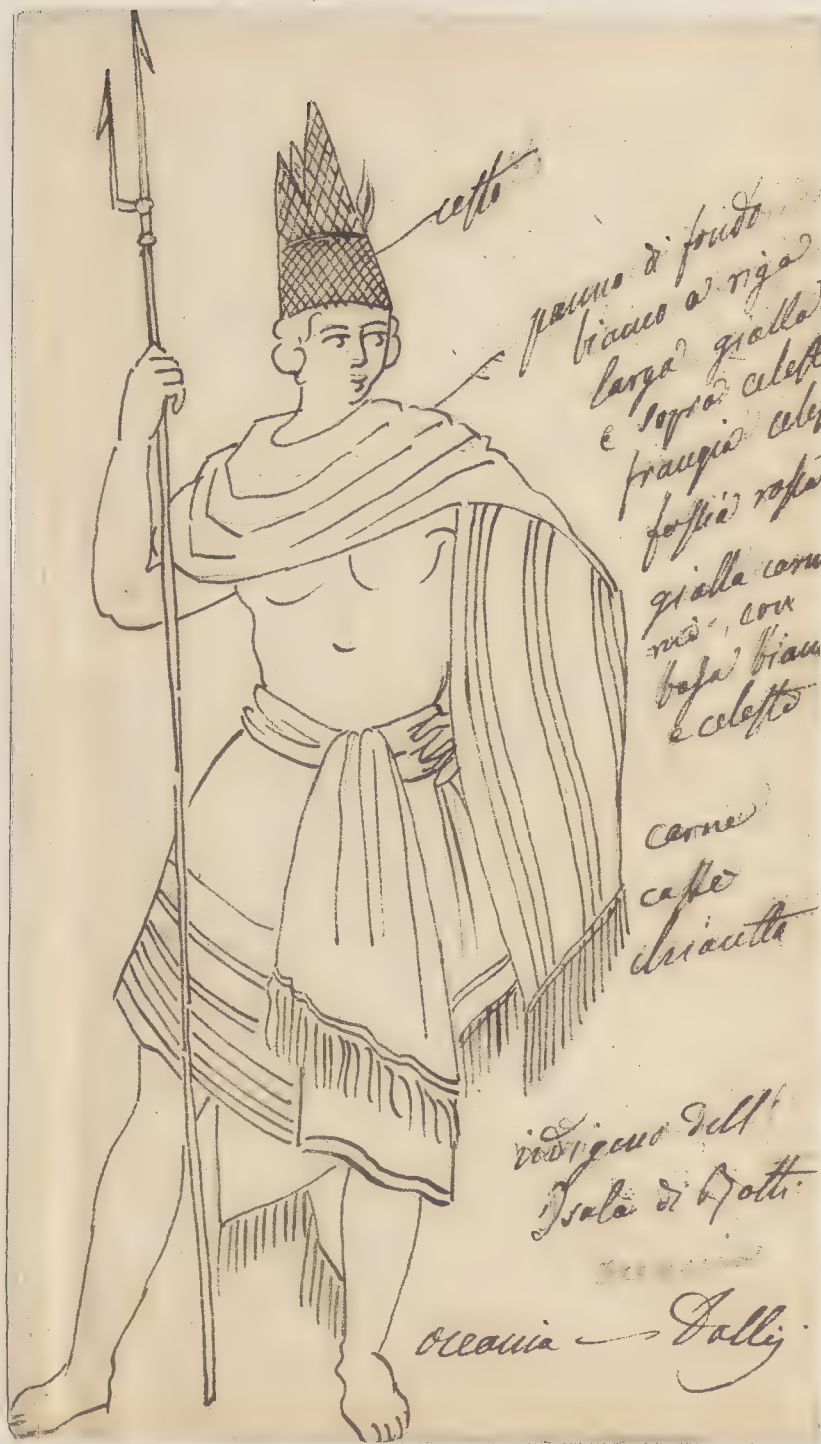 cesto
panno di fondo
bianco a riga
larga gialla
e sopra celest
frangia celes
gialla carmi
con
bianc
e celeste
carne
caffè
chiaretta
indigeno dell'
Isola di
oceania — Dally